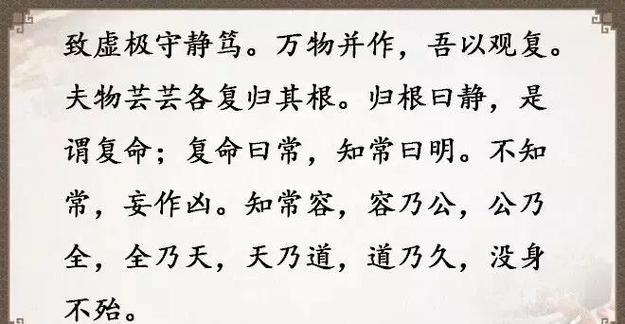 致虚极守静笃。万物并作，吾以观复。
夫物芸芸各复归其根。归根曰静，是
谓复命；复命曰常，知常曰明。不知
常，妄作凶。知常容，容乃公，公乃
全，全乃天，天乃道，道乃久，没身
不殆。